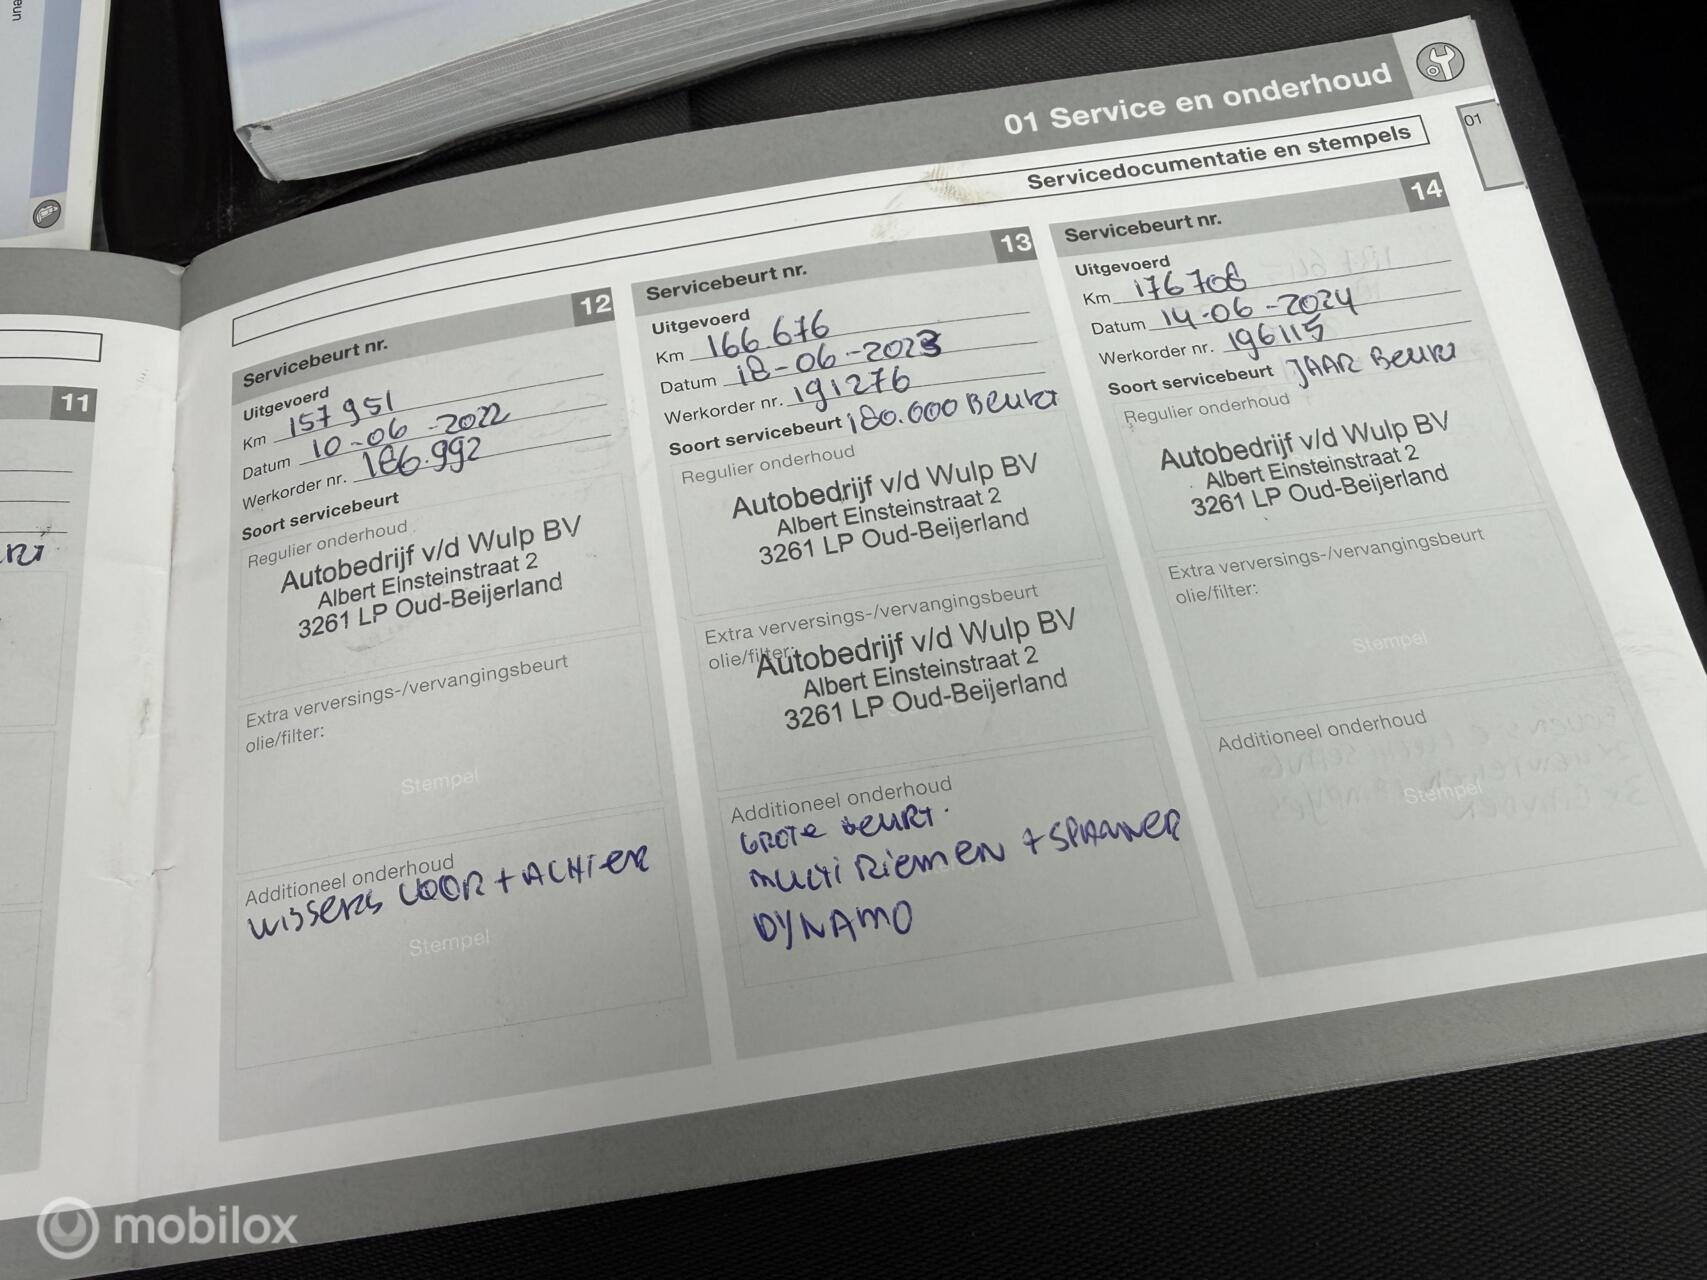 01 Service en onderhoud
Servicedocumentatie en stempels
01
11
Servicebeurt nr. 12
Uitgevoerd
Km 157 951
Datum 10-06-2022
Werkorder nr. 186.992
Soort servicebeurt
Regulier onderhoud
Autobedrijf v/d Wulp BV
Albert Einsteinstraat 2
3261 LP Oud-Beijerland
Extra verversings-/vervangingsbeurt
olie/filter:
Stempel
Additioneel onderhoud
WISSERS VOOR + ACHTER
Stempel
Servicebeurt nr. 13
Uitgevoerd
Km 166 676
Datum 18-06-2023
Werkorder nr. 191276
Soort servicebeurt 180.000 BEURT
Regulier onderhoud
Autobedrijf v/d Wulp BV
Albert Einsteinstraat 2
3261 LP Oud-Beijerland
Extra verversings-/vervangingsbeurt
olie/filter:
Autobedrijf v/d Wulp BV
Albert Einsteinstraat 2
3261 LP Oud-Beijerland
Additioneel onderhoud
GROTE BEURT.
MULTI RIEMEN + SPANNER
DYNAMO
Servicebeurt nr. 14
Uitgevoerd
Km 176708
Datum 14-06-2024
Werkorder nr. 196115
Soort servicebeurt JAAR BEURT
Regulier onderhoud
Autobedrijf v/d Wulp BV
Albert Einsteinstraat 2
3261 LP Oud-Beijerland
Extra verversings-/vervangingsbeurt
olie/filter:
Stempel
Additioneel onderhoud
Stempel
mobilox